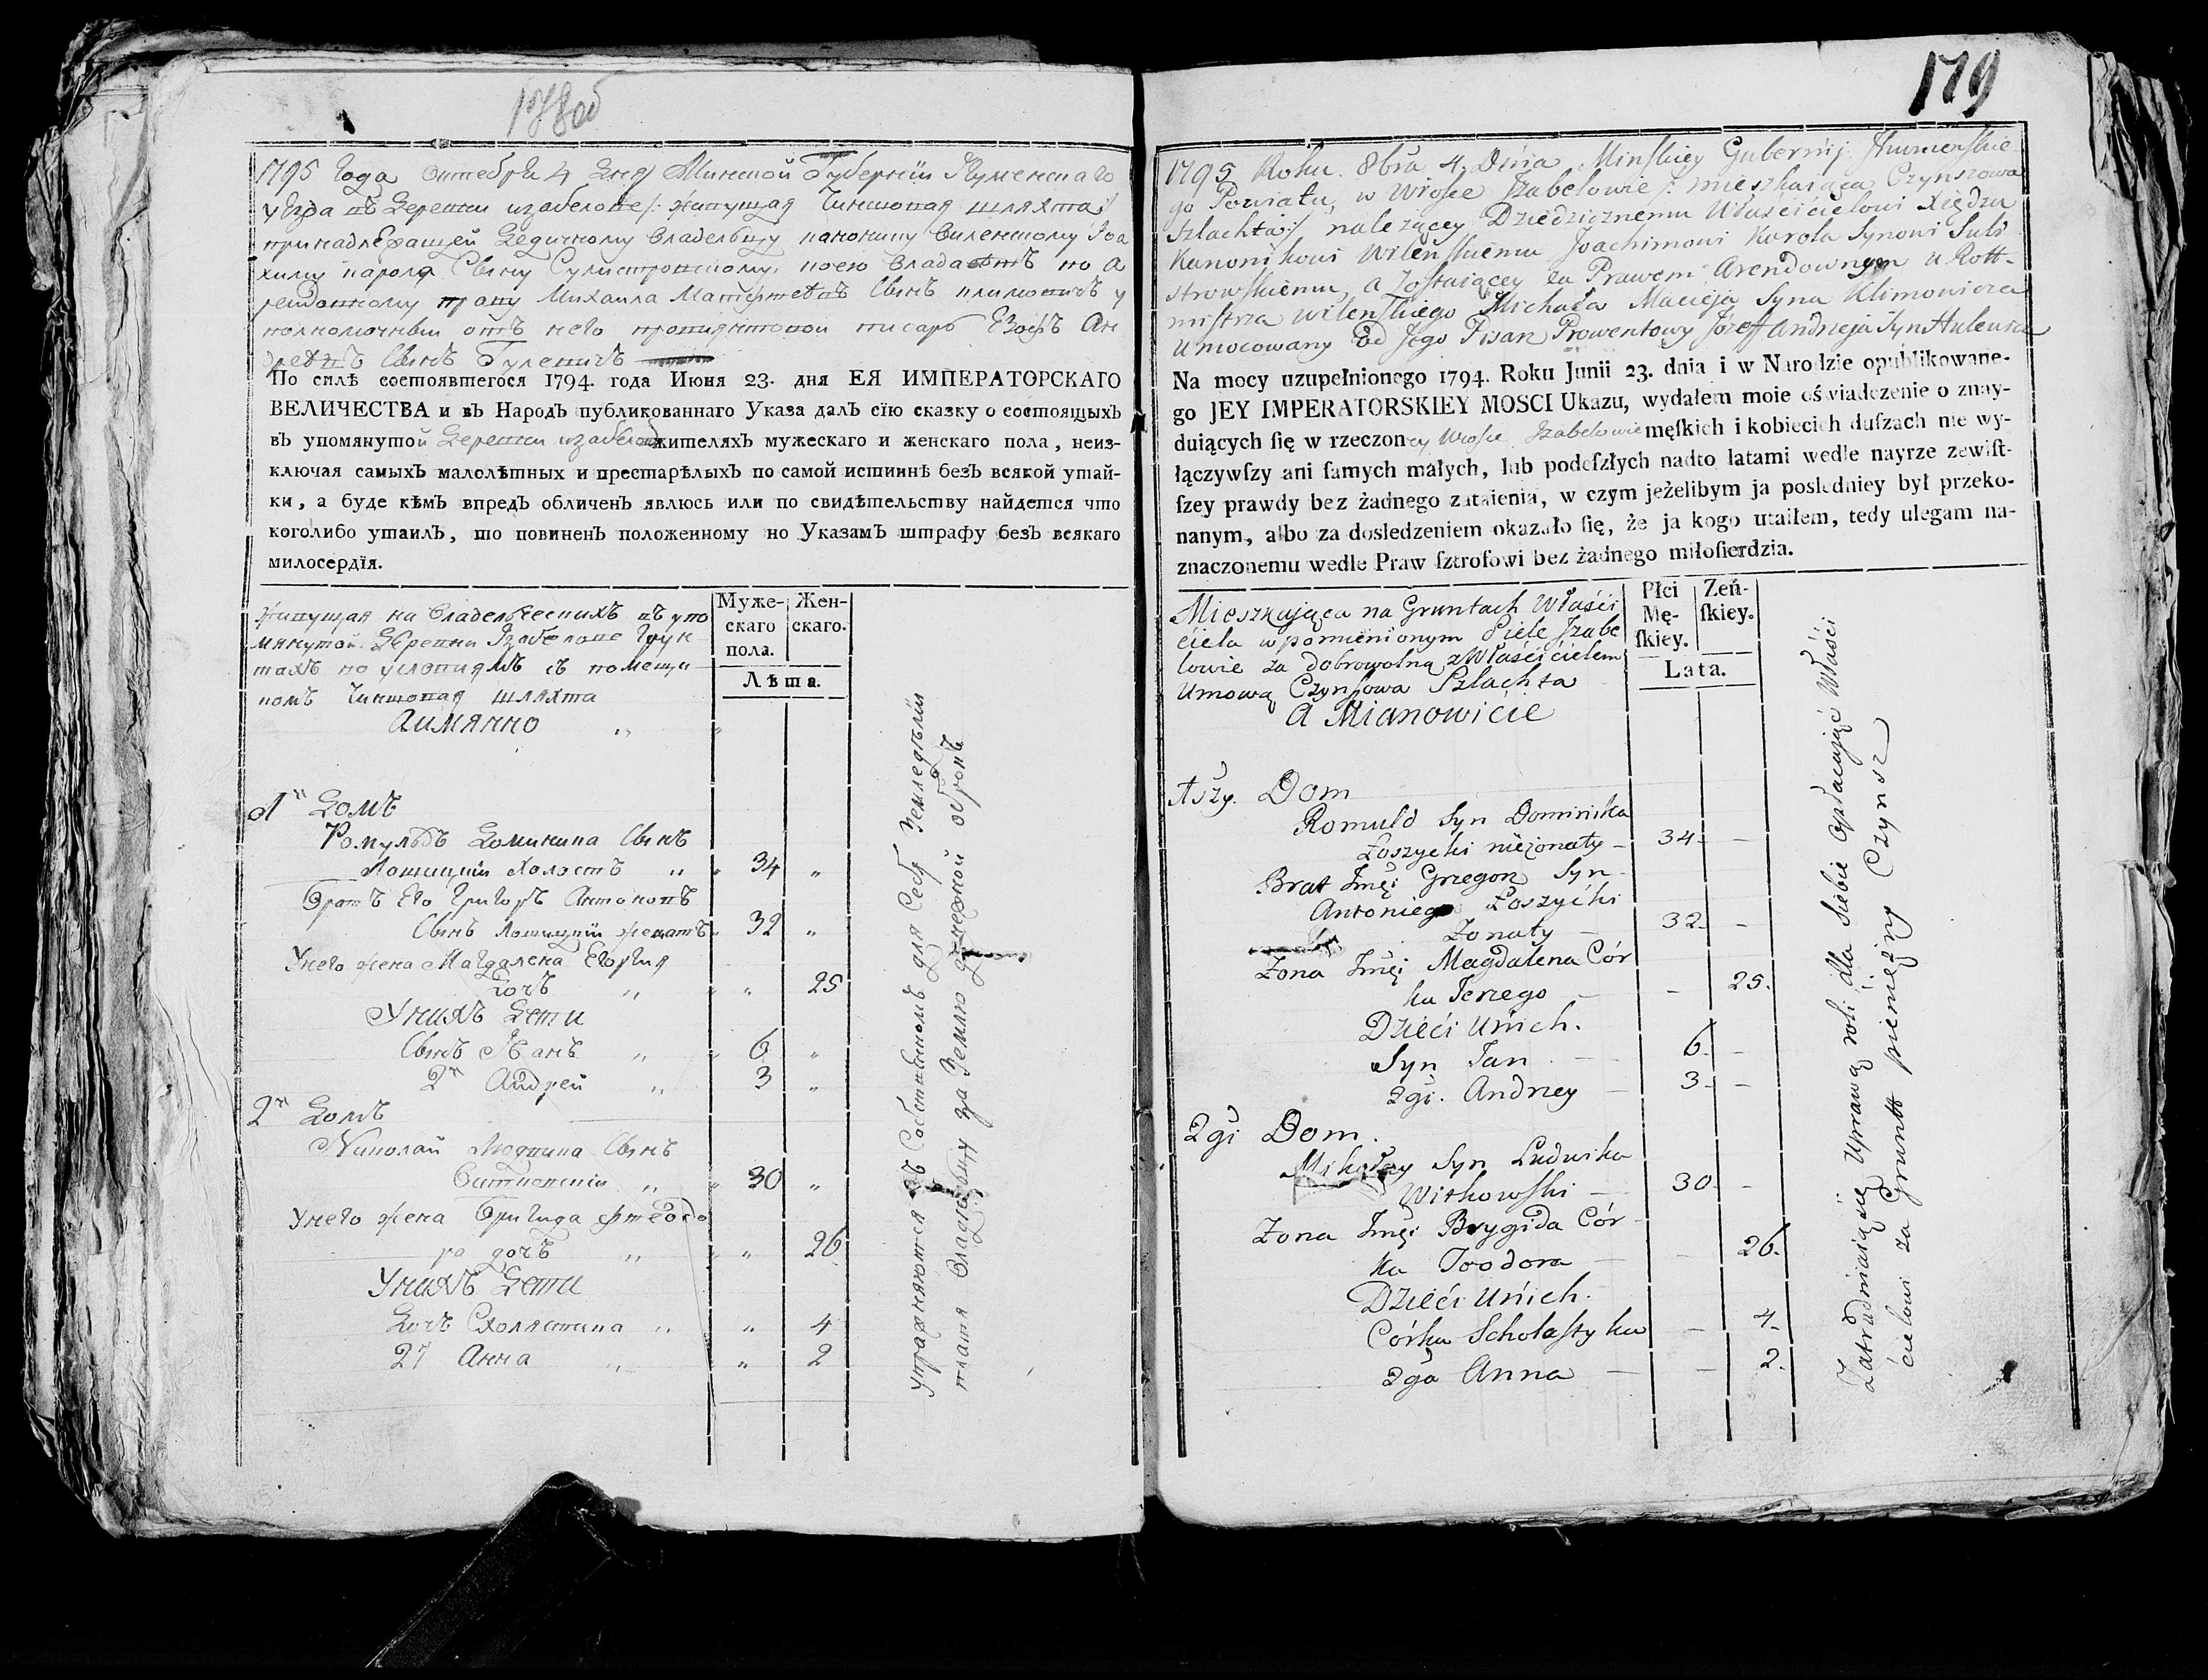 178об
1795 года Октебря 4 Дня Минской Губернии Игуменскаго
уезда въ Деревни изабелове /: живущая Чиншовая шляхта :/
принадлежащей Дедичному владельцу канонику виленскому Іоа
химу карола Сыну Сулистровскому, коею владаетъ по а
рендовному праву Михаила Матфтевъ Сынъ климовичъ у
полномочный отъ него провиянтовой писарь Езофъ Ан
дреевъ Сынъ Гулевичъ
По силѣ состоявшегося 1794. года Июня 23. дня ЕЯ ИМПЕРАТОРСКАГО
ВЕЛИЧЕСТВА и въ Народъ публикованнаго Указа далъ сїю сказку о состоящыхъ
въ упомянутой Деревни изабелов жителяхъ мужескаго и женскаго пола, неиз-
ключая самыхъ малолѣтныхъ и престарѣлыхъ по самой истиннѣ безъ всякой утай-
ки, а буде кѣмъ впредъ обличенъ явлюсь или по свидѣтельству найдется что
коголибо утаилъ, то повиненъ положенному но Указамъ штрафу безъ всякаго
милосердїя.
живущая на владельческихъ въ упо
мянутой Деревни Изабелове Грун
тахъ по условиямъ съ помещи
комъ Чиншовая шляхта
Аимянно
Муже-
скаго
пола.
Жен-
скаго.
Лѣта.
1й Домъ
Ромульдъ Доминика Сынъ
Лошицкий Холостъ " 34 "
Братъ Его Григоръ Антоновъ
Сынъ Лошицкий женатъ 32 "
Унего жена Магдалена Егоргия
Дочь " " 25
Унихъ Дети
Сынъ Іванъ " 6 "
2й Андрей " 3 "
2й Домъ
Николай Людвика Сынъ
Витковский " 30 "
Унего жена Бригида Фтеодо
ра дочь " " 26
Унихъ Дети
Дочь Схолястика " " 4
2я Анна " " 2
упражняются въ Собственномъ для Себя Земледѣлии
платя владельцу за Землю денежной оброкъ
179
1795 Roku 8bra 4 Dnia, Minskiey Gubernij Ihumenskie
go Powiatu, w Wiosce Izabelowie /: mieszkaiąca Czynszowa
Szlachta :/ należącey Dziedzicznemu Właścicielowi Xiędzu
Kanonikowi Wilenskiemu Joachimowi Karola Synowi Suli
strowskiemu, a Zostaiącey za Prawem Arendownym u Rott-
mistrza Wilenskiego Michała Macieja Syna Klimowicza
Umocowany Od Jego Pisarz Prowentowy Józeff Andrzeja Syn Hulewicz
Na mocy uzupełnionego 1794. Roku Junii 23. dnia i w Narodzie opublikowane-
go JEY IMPERATORSKIEY MOSCI Ukazu, wydałem moie oświadczenie o znay-
duiących ſię w rzeczoney Wiosce Izabelowie męſkich i kobiecich duſzach nie wy-
łączywſzy ani ſamych małych, lub podeſzłych nadto latami wedle nayrze zewiſt-
ſzey prawdy bez żadnego zataienia, w czym jeżelibym ja posledniey był przeko-
nanym, albo za dosledzeniem okazało ſię, że ja kogo utaiłem, tedy ulegam na-
znaczonemu wedle Praw ſztrofowi bez żadnego miłoſierdzia.
Mieszkająca na Gruntach Właści
ciela wpomienionym Siele Izabe
lowie za dobrowolną z Właścicielem
Umową Czynszowa Szlachta
A Mianowicie
Płci
Mę-
ſkiey.
Zeń-
ſkiey.
Lata.
1szy. Dom
Romuld Syn Dominika
Łoszycki nieżonaty – 34 –
Brat Jmci Grzegorz Syn
Antoniego Łoszycki
Żonaty – 32 –
Żona Jmci Magdalena Cór
ka Jerzego – – 25.
Dzieci Unich.
Syn Jan – 6. –
2gi. Andrzey – 3. –
2gi Dom.
Mikołay Syn Ludwika
Witkowski – 30 –
Żona Jmci Brygida Cór
ka Teodora – 26.
Dzieci Unich.
Córka Scholastyka – 4.
2ga Anna – – 2.
Zatrudniaią się Uprawą roli dla Siebie Opłacając Właści
cielowi za Gruntt pieniężny Czynsz